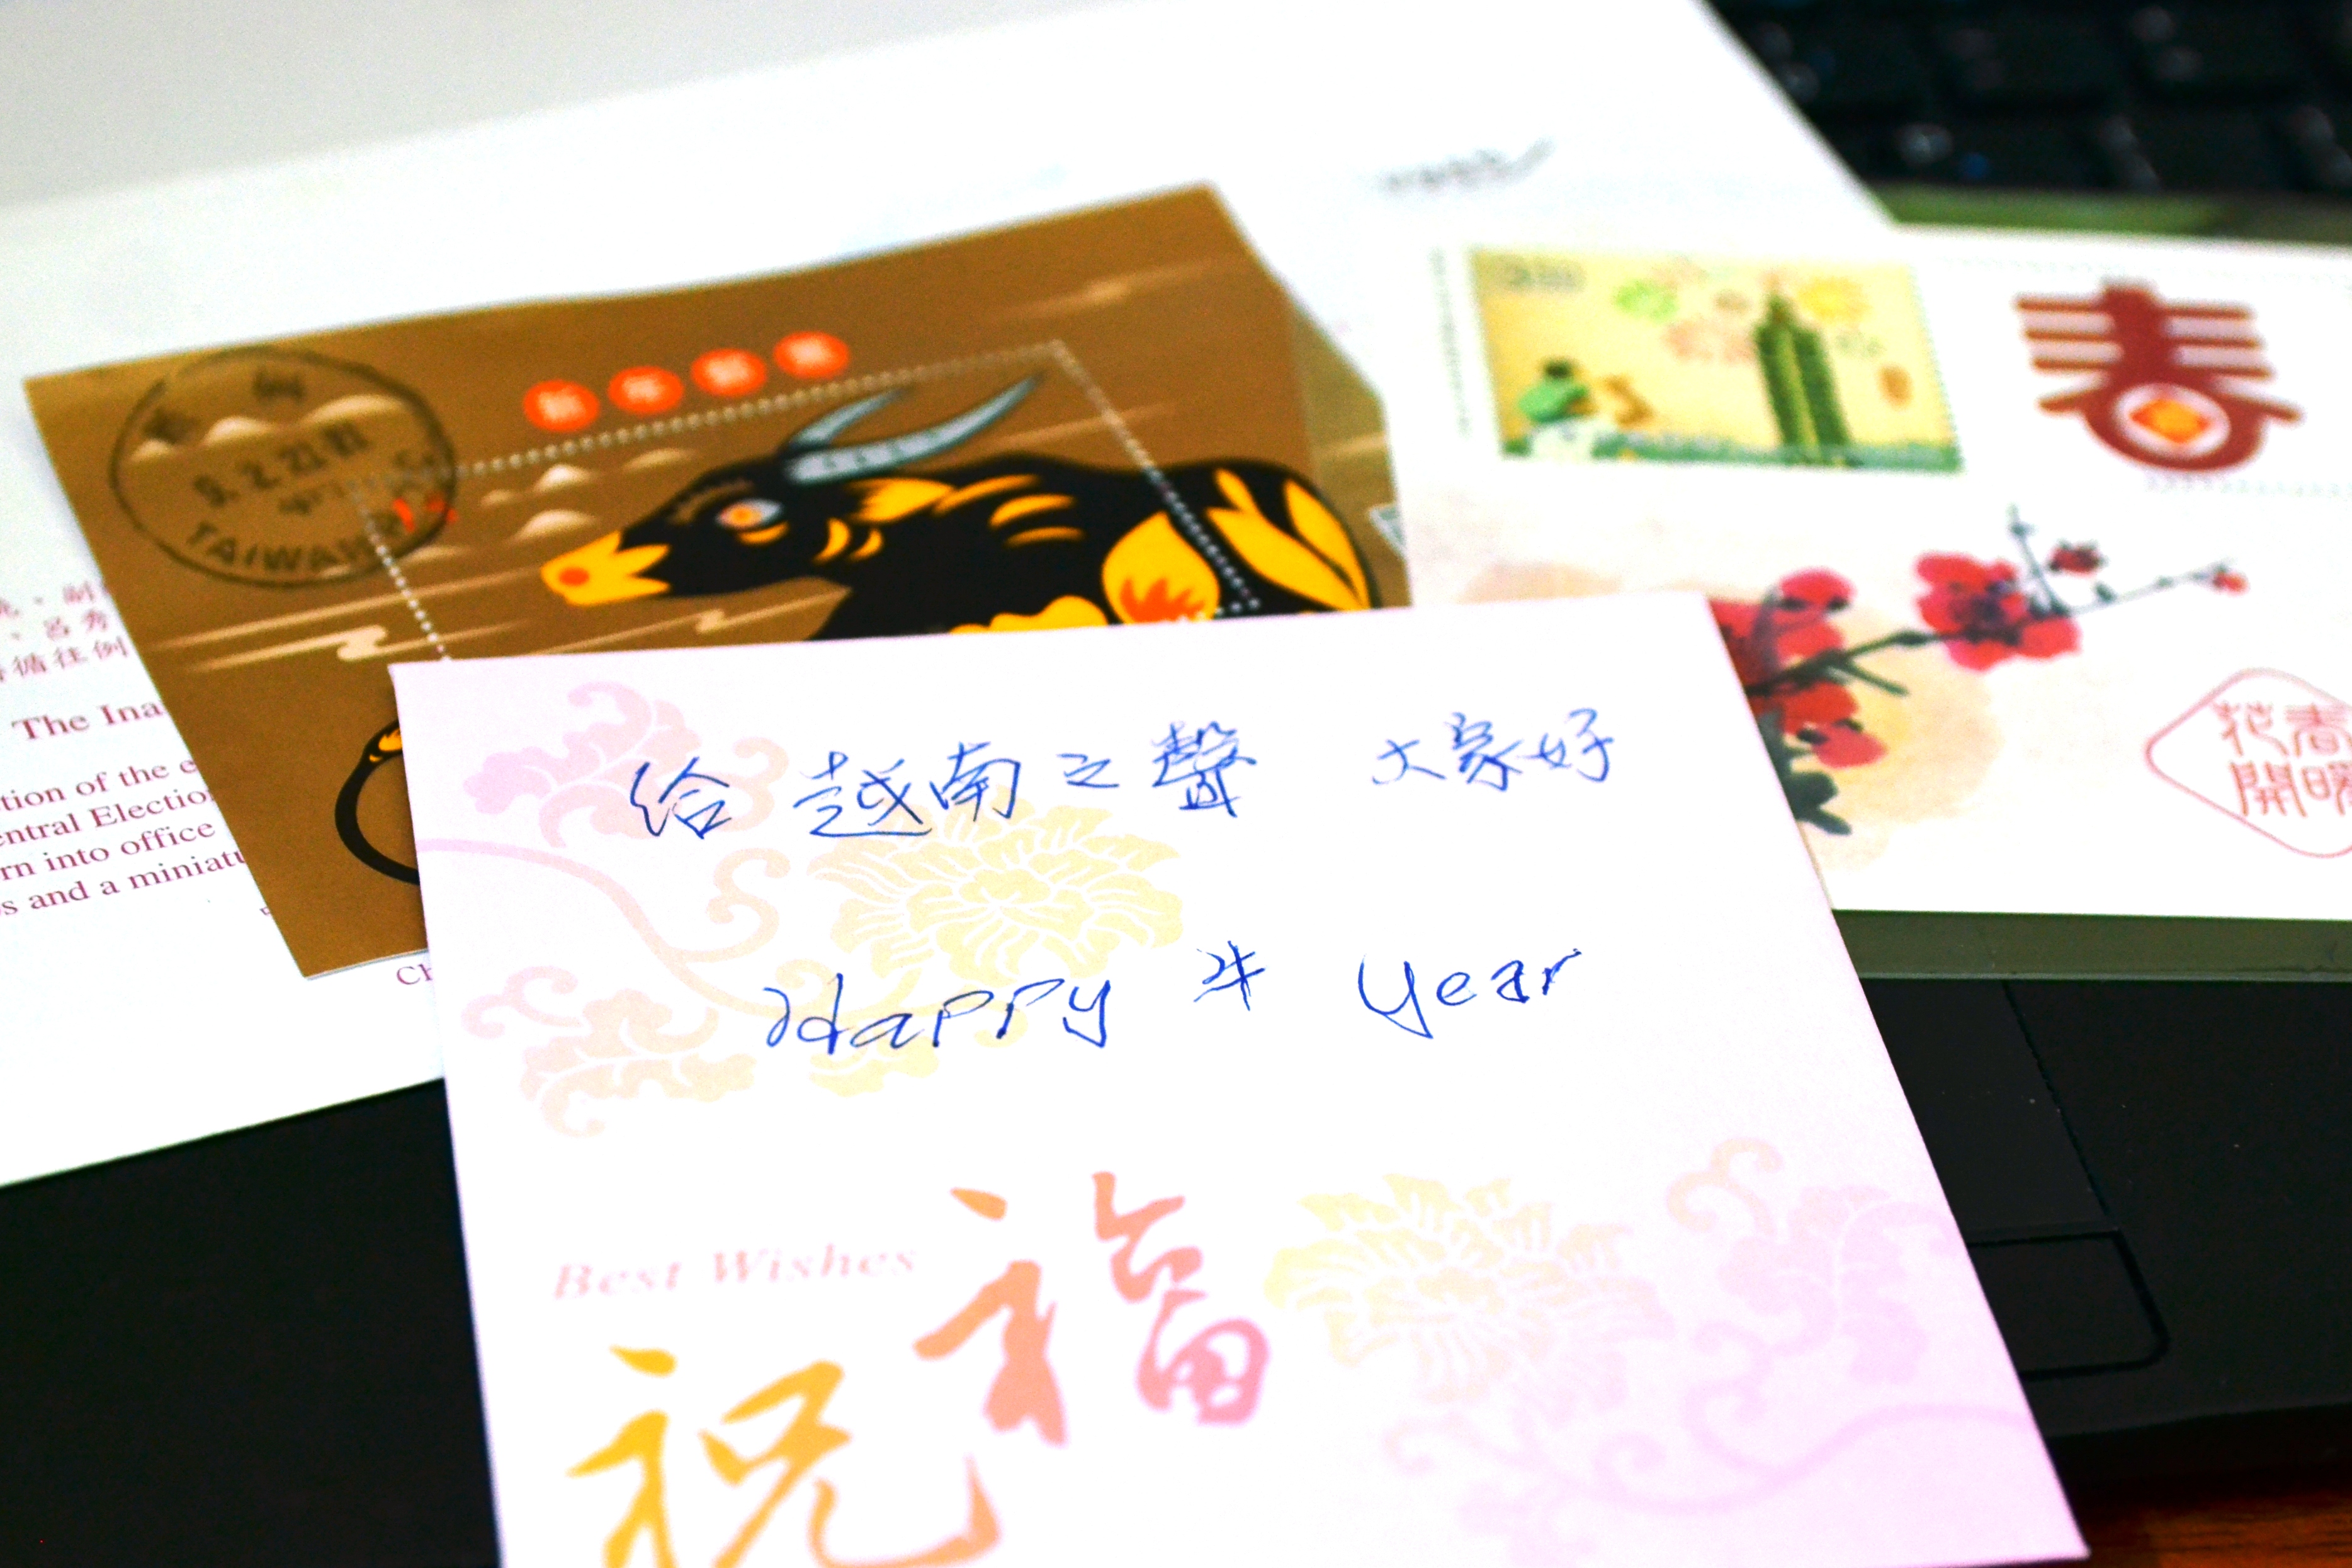 新年
TAIWAN
春
春暖
花開
、副
、呂秀
循往例
The Ina
tion of the e
entral Electio
rn into office
s and a miniatu
Ch
給 越南之聲 大家好
Happy 牛 year
Best Wishes
祝福